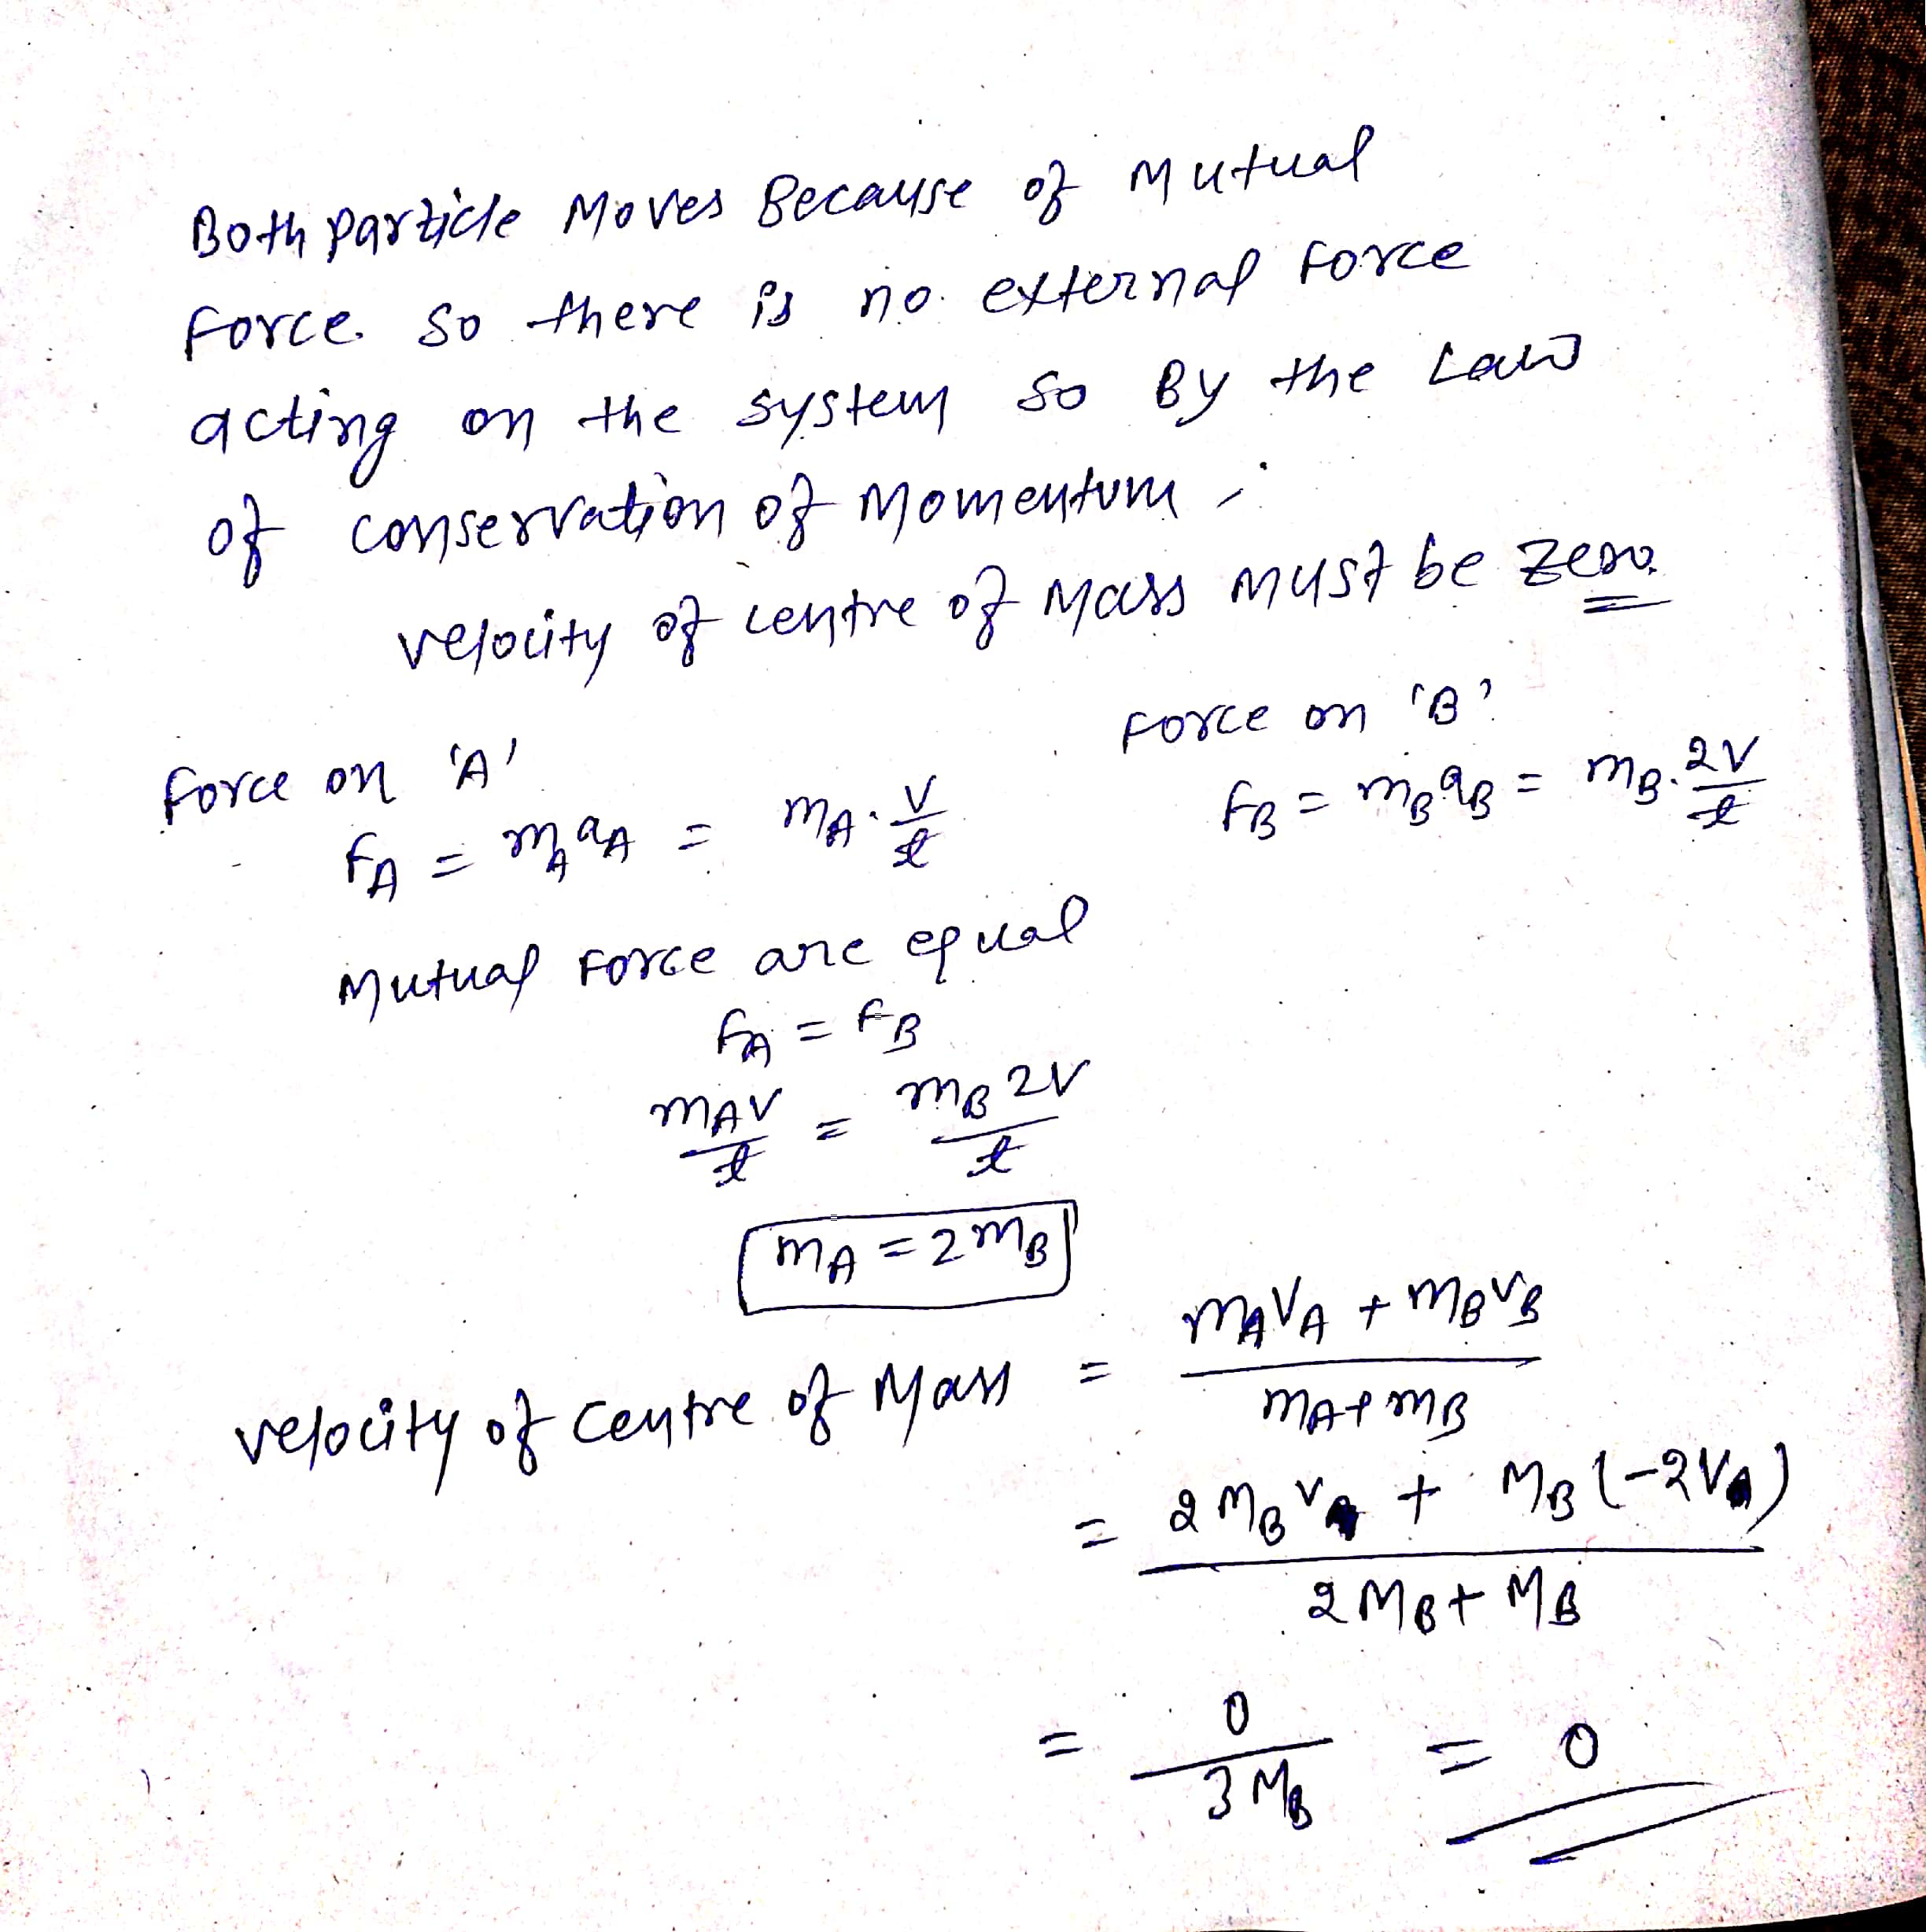 Both particle Moves Because of Mutual
Force. So there is no external Force
acting on the system So By the Law
of conservation of Momentum :
velocity of centre of Mass must be zero.
Force on 'A'
F_A = m_A a_A = m_A . V/t
Force on 'B'
F_B = m_B a_B = m_B . 2V/t
Mutual Force are equal
F_A = F_B
m_A V/t = m_B 2V/t
m_A = 2 m_B
velocity of Centre of Mass = (m_A V_A + m_B V_B)/(m_A + m_B)
= (2 M_B V_A + M_B (-2V_A))/(2 M_B + M_B)
= 0/(3 M_B) = 0